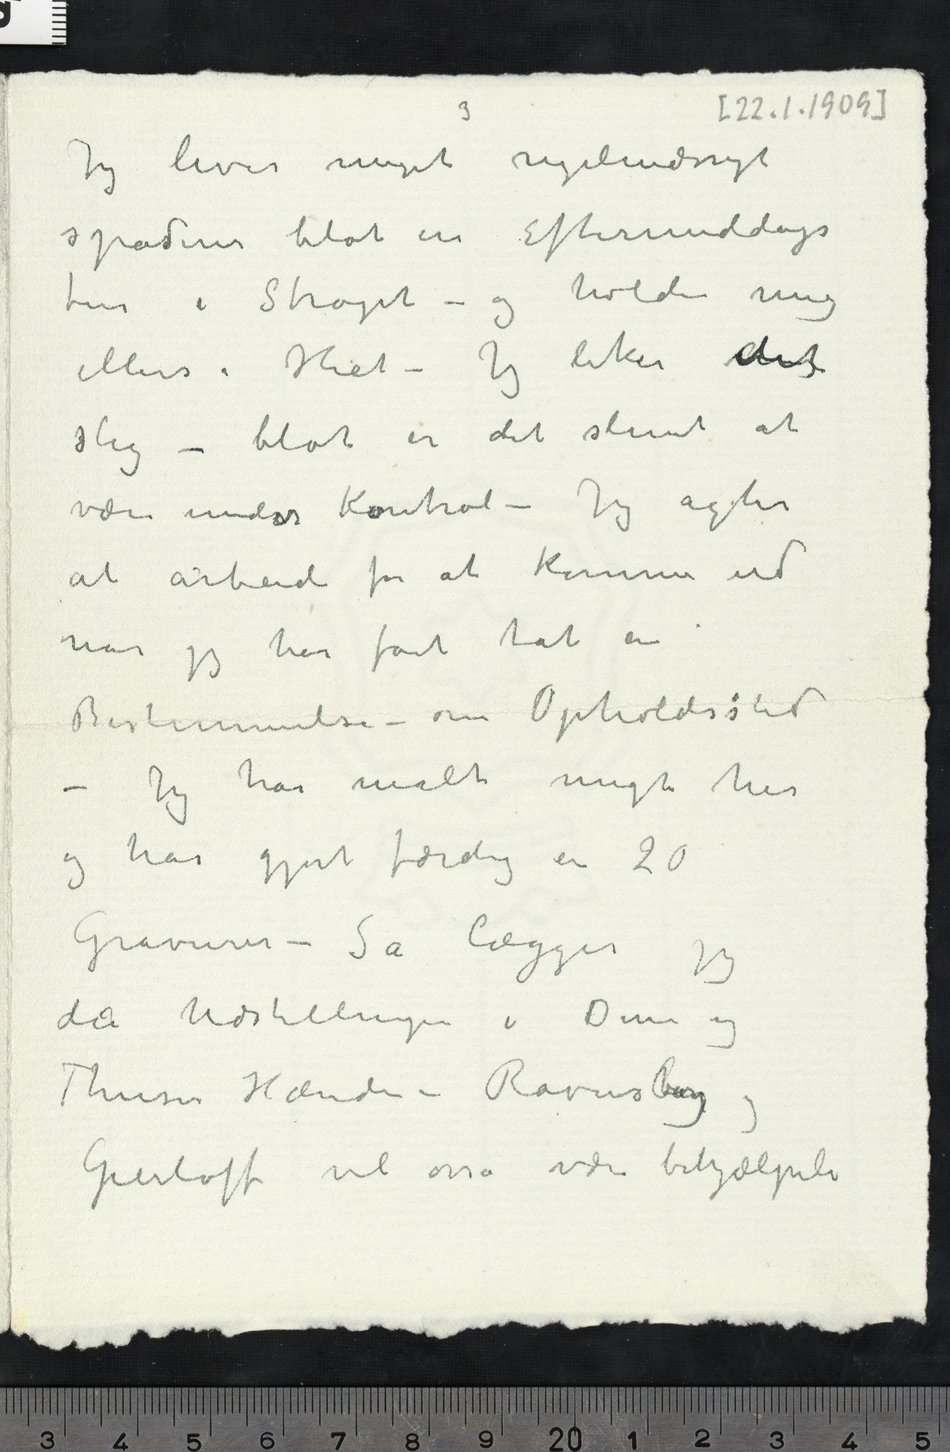 3
[22.1.1909]
Jeg lever meget regelmæssigt
spaserer blot en Eftermiddags
tur i Strøget – og holder mig
ellers i Hiet – Jeg liker det
slig – blot er det slemt at
være under Kontrol – Jeg agter
at arbeide for at komme ud
når jeg har fåt tat en
Bestemmelse – om Opholdssted
– Jeg har malt meget her
og har gjort færdig en 20
Gravurer – Så lægger jeg
da Udstillingen i Dine og
Thiises Hænder – Ravensberg og
Gierløff vil osså være behjælpele